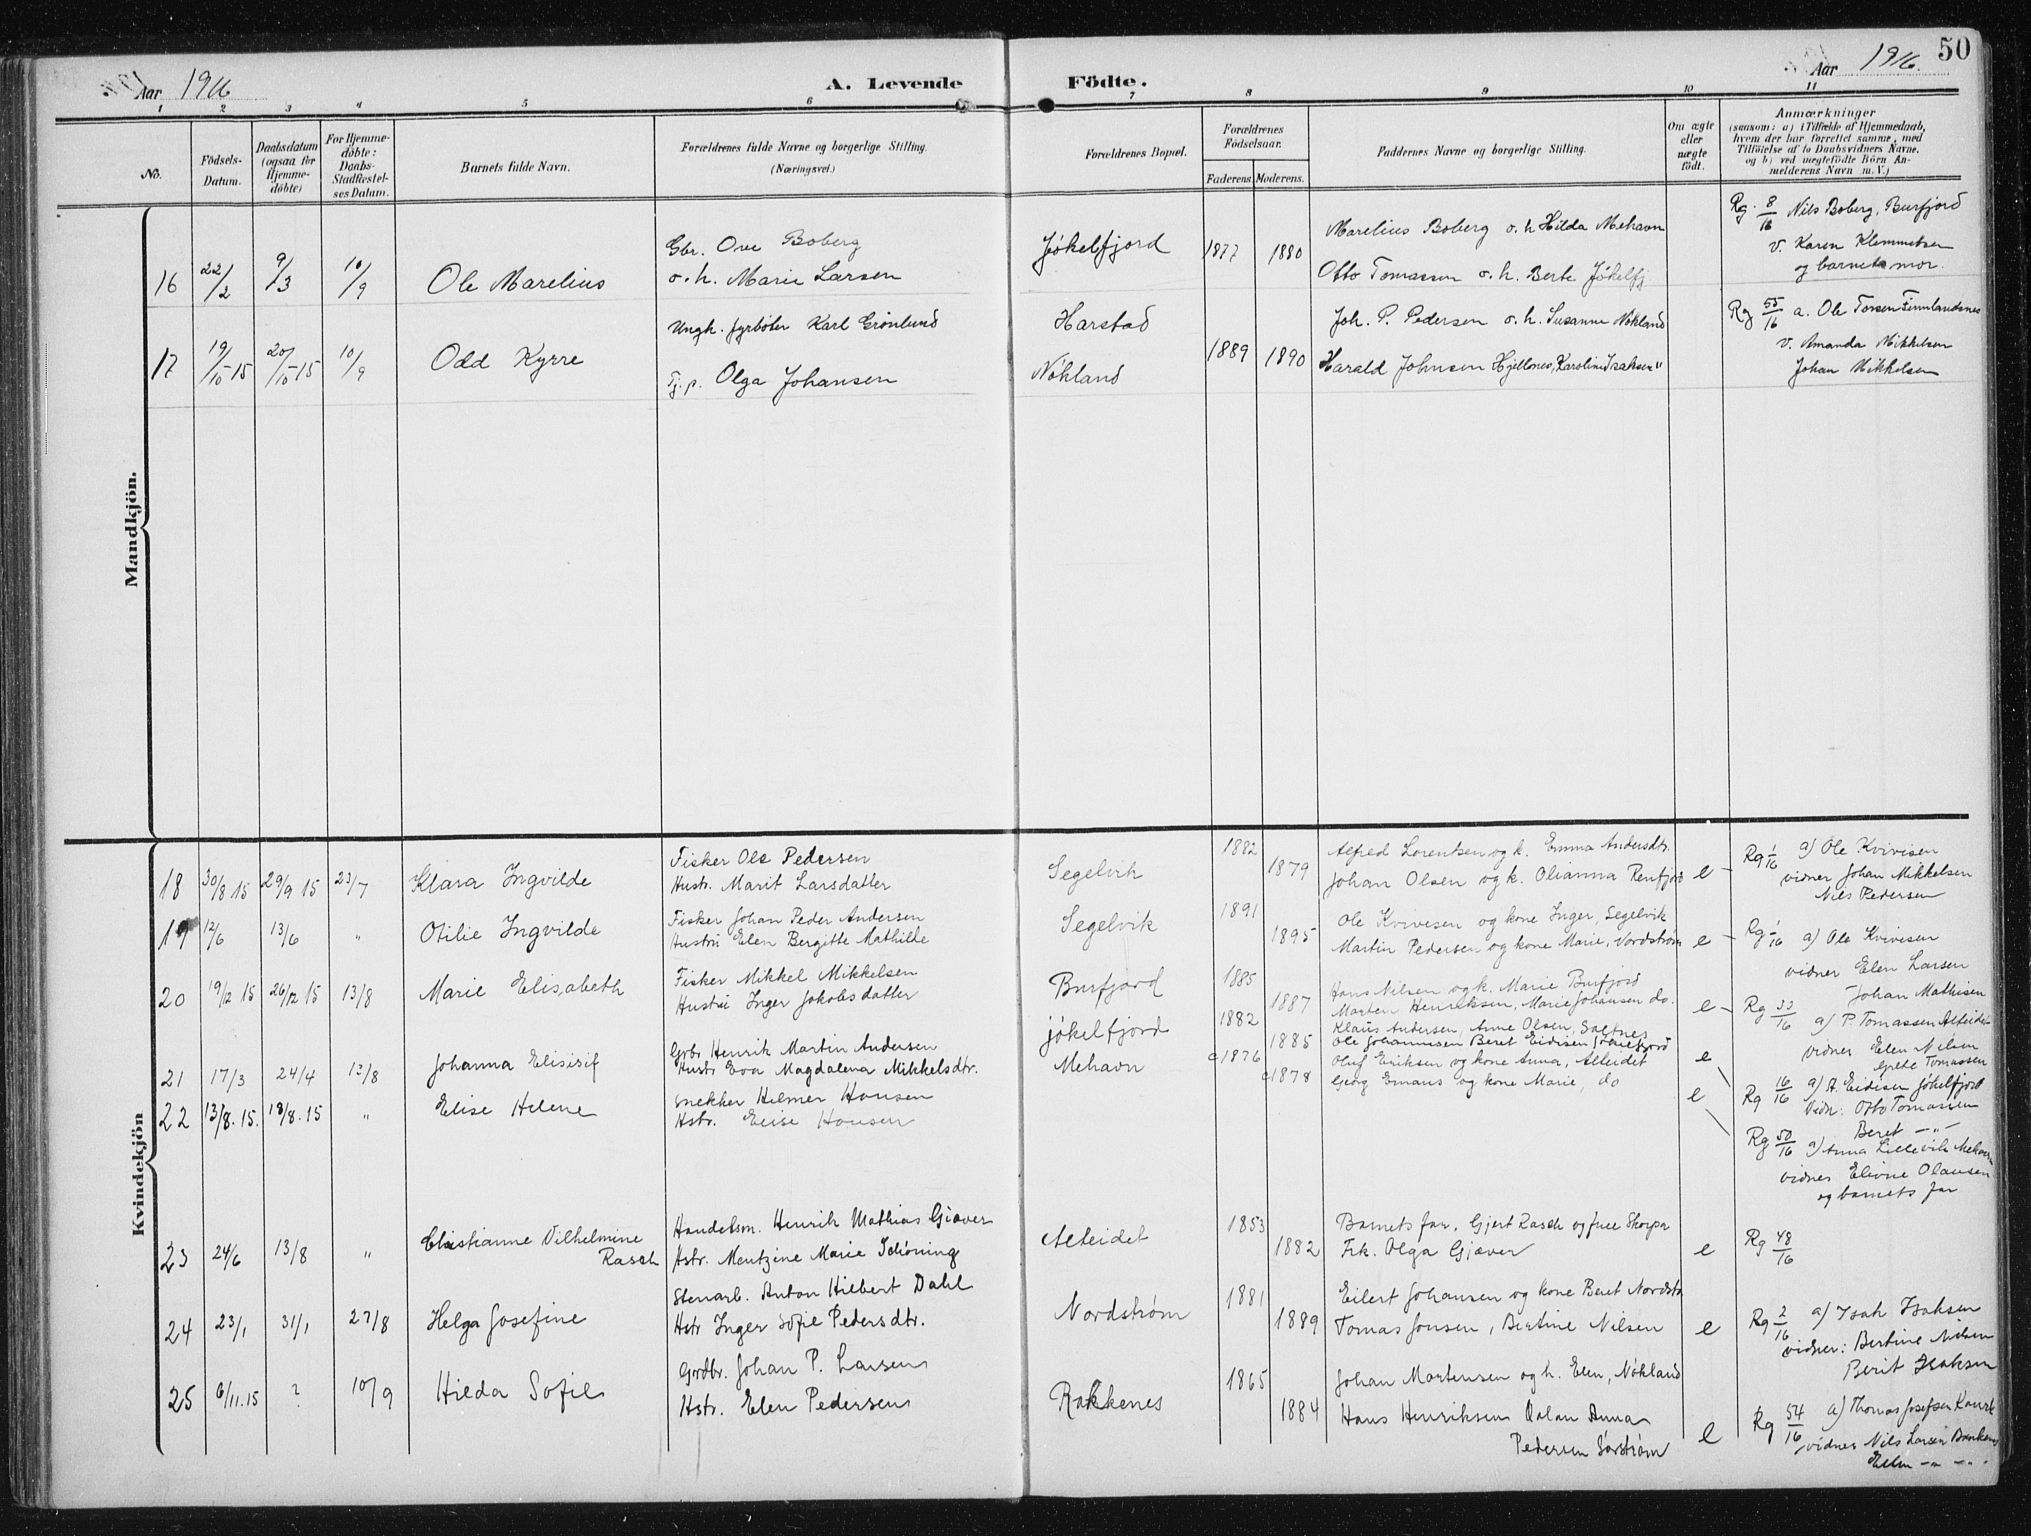 Aar 1916
A. Levende Födte.
Aar 1916.
50
1 2 3 4 5 6 7 8 9 10 11
No.
Födsels-
Datum.
Daabsdatum
(ogsaa for
Hjemme-
döbte)
For Hjemme-
döbte:
Daabs-
Stadfæstel-
ses Datum.
Barnets fulde Navn.
Forældrenes fulde Navne og borgerlige Stilling.
(Næringsvei.)
Forældrenes Bopæl.
Forældrenes
Födselsaar.
Faderens. Moderens.
Faddernes Navne og borgerlige Stilling.
Om ægte
eller
uægte
födt.
Anmærkninger
(saasom: a) i Tilfælde af Hjemmedaab,
hvem der har forrettet samme, med
Tilföielse af to Daabsvidners Navne,
og b) ved uægtefödte Börn An-
melderens Navn m. V.)
Mandkjön.
16 22/2 9/3 10/9 Ole Marelius
Gbr. Ove Boberg
o. h. Marie Larsen
Jøkelfjord 1877 1880
Marelius Boberg o. h Hilda Mehavn
Otto Tomassen o. h. Berte Jøkelfj
Rg. 8/16 Nils Boberg, Burfjord
v. Karen Klemmetsen
og barnets mor.
17 19/10 15 20/10 15 10/9 Odd Kyrre
Ungk. fyrbøter Karl Grønlund
Tj. p. Olga Johansen
Harstad
Nøkland
1889 1890
Joh. P. Pedersen o. h. Susanne Nøkland
Harald Johnsen Hjellnes, Karoline Isaksen "
Rg 55/16 a. Ole Torsen Finnlandsnes
v. Amanda Mikkelsen
Johan Mikkelsen
Kvindekjön
18 30/8 15 29/9 15 23/7 Klara Ingvilde
Fisker Ole Pedersen
Hustr. Marit Larsdatter
Segelvik 1882 1879
Alfred Lorentsen og k. Emma Andersdtr.
Johan Olsen og k. Olianna Renfjord e
Rg 1/16 a) Ole Kvivisen
vidner Johan Mikkelsen
Nils Pedersen
19 12/6 13/6 " Otilie Ingvilde
Fisker Johan Peder Andersen
Hustru Elen Bergitte Mathilde
Segelvik 1891 1895
Ole Kvivesen og kone Inger, Segelvik
Martin Pedersen og kone Marie, Nordstrøm e
Rg 1/16 a) Ole Kvivisen
vidner Elen Larsen
Johan Mathisen
20 19/12 15 26/12 15 13/8 Marie Elisabeth
Fisker Mikkel Mikkelsen
Hustru Inger Jakobsdatter
Burfjord 1885 1887
Hans Nilsen og k. Marie Burfjord
Morten Henriksen, Marie Johansen do. e
Rg 33/16 a) P. Tomassen Alteidet
vidner Elen Nilsen
Tomassen
21 17/3 24/4 13/8 Johanna Elisirif
Grbr Henrik Martin Andersen
Hustr Eva Magdalena Mikkelsdtr.
jøkelfjord 1882 1885
Klaus Andersen, Anne Olsen, Saltnes
Ole Johannissen Beret Eidisen e
Rg 16/16 a) A. Eidisen Jøkelfjord
Vidn: Otto Tomassen
Beret — " —
22 13/8. 15. 18/8. 15 " Elise Helene
snekker Hilmer Hansen
Hstr. Elise Hansen
Mehavn 1876 1878
Oluf Eriksen og kone Anna, Alteidet
Georg Emaus og kone Marie, do e
Rg 50/16 a) Anna Lillevik Mehavn
vidner Elivne Olausen
og barnets far
23 24/6 13/8 " Christianne Vilhelmine
Rasch
Handelsm. Henrik Mathias Giæver
Hstr. Mentzine Marie Schöning
Alteidet 1853 1882
Barnets far, Gjert Rasch og frue Skorpa
Frk. Olga Gjæver e
Rg 48/16
24 23/1 31/1 27/8 Helga Josefine
Stenarb. Anton Hilbert Dahl
Hstr Inger Sofie Pedersdtr.
Nordstrøm 1881 1889
Eilert Johansen og kone Beret Nordstr.
Tomas Jonsen, Bertine Nilsen e
Rg 2/16 a) Isak Isaksen
vidner: Bertine Nilsen
Berit Isaksen
25 6/11. 15 ? 10/9 Hilda Sofie
Grdbr. Johan P. Larsen
Hstr. Elen Pedersen
Rakkenes 1865 1884
Johan Mortensen og h. Elen, Nøkland
Hans Henriksen Anna
Pedersen Sørstrøm e
Rg 54/16 a) Thomas Josefsen
vidner Nils Larsen
Ellen — " — " —